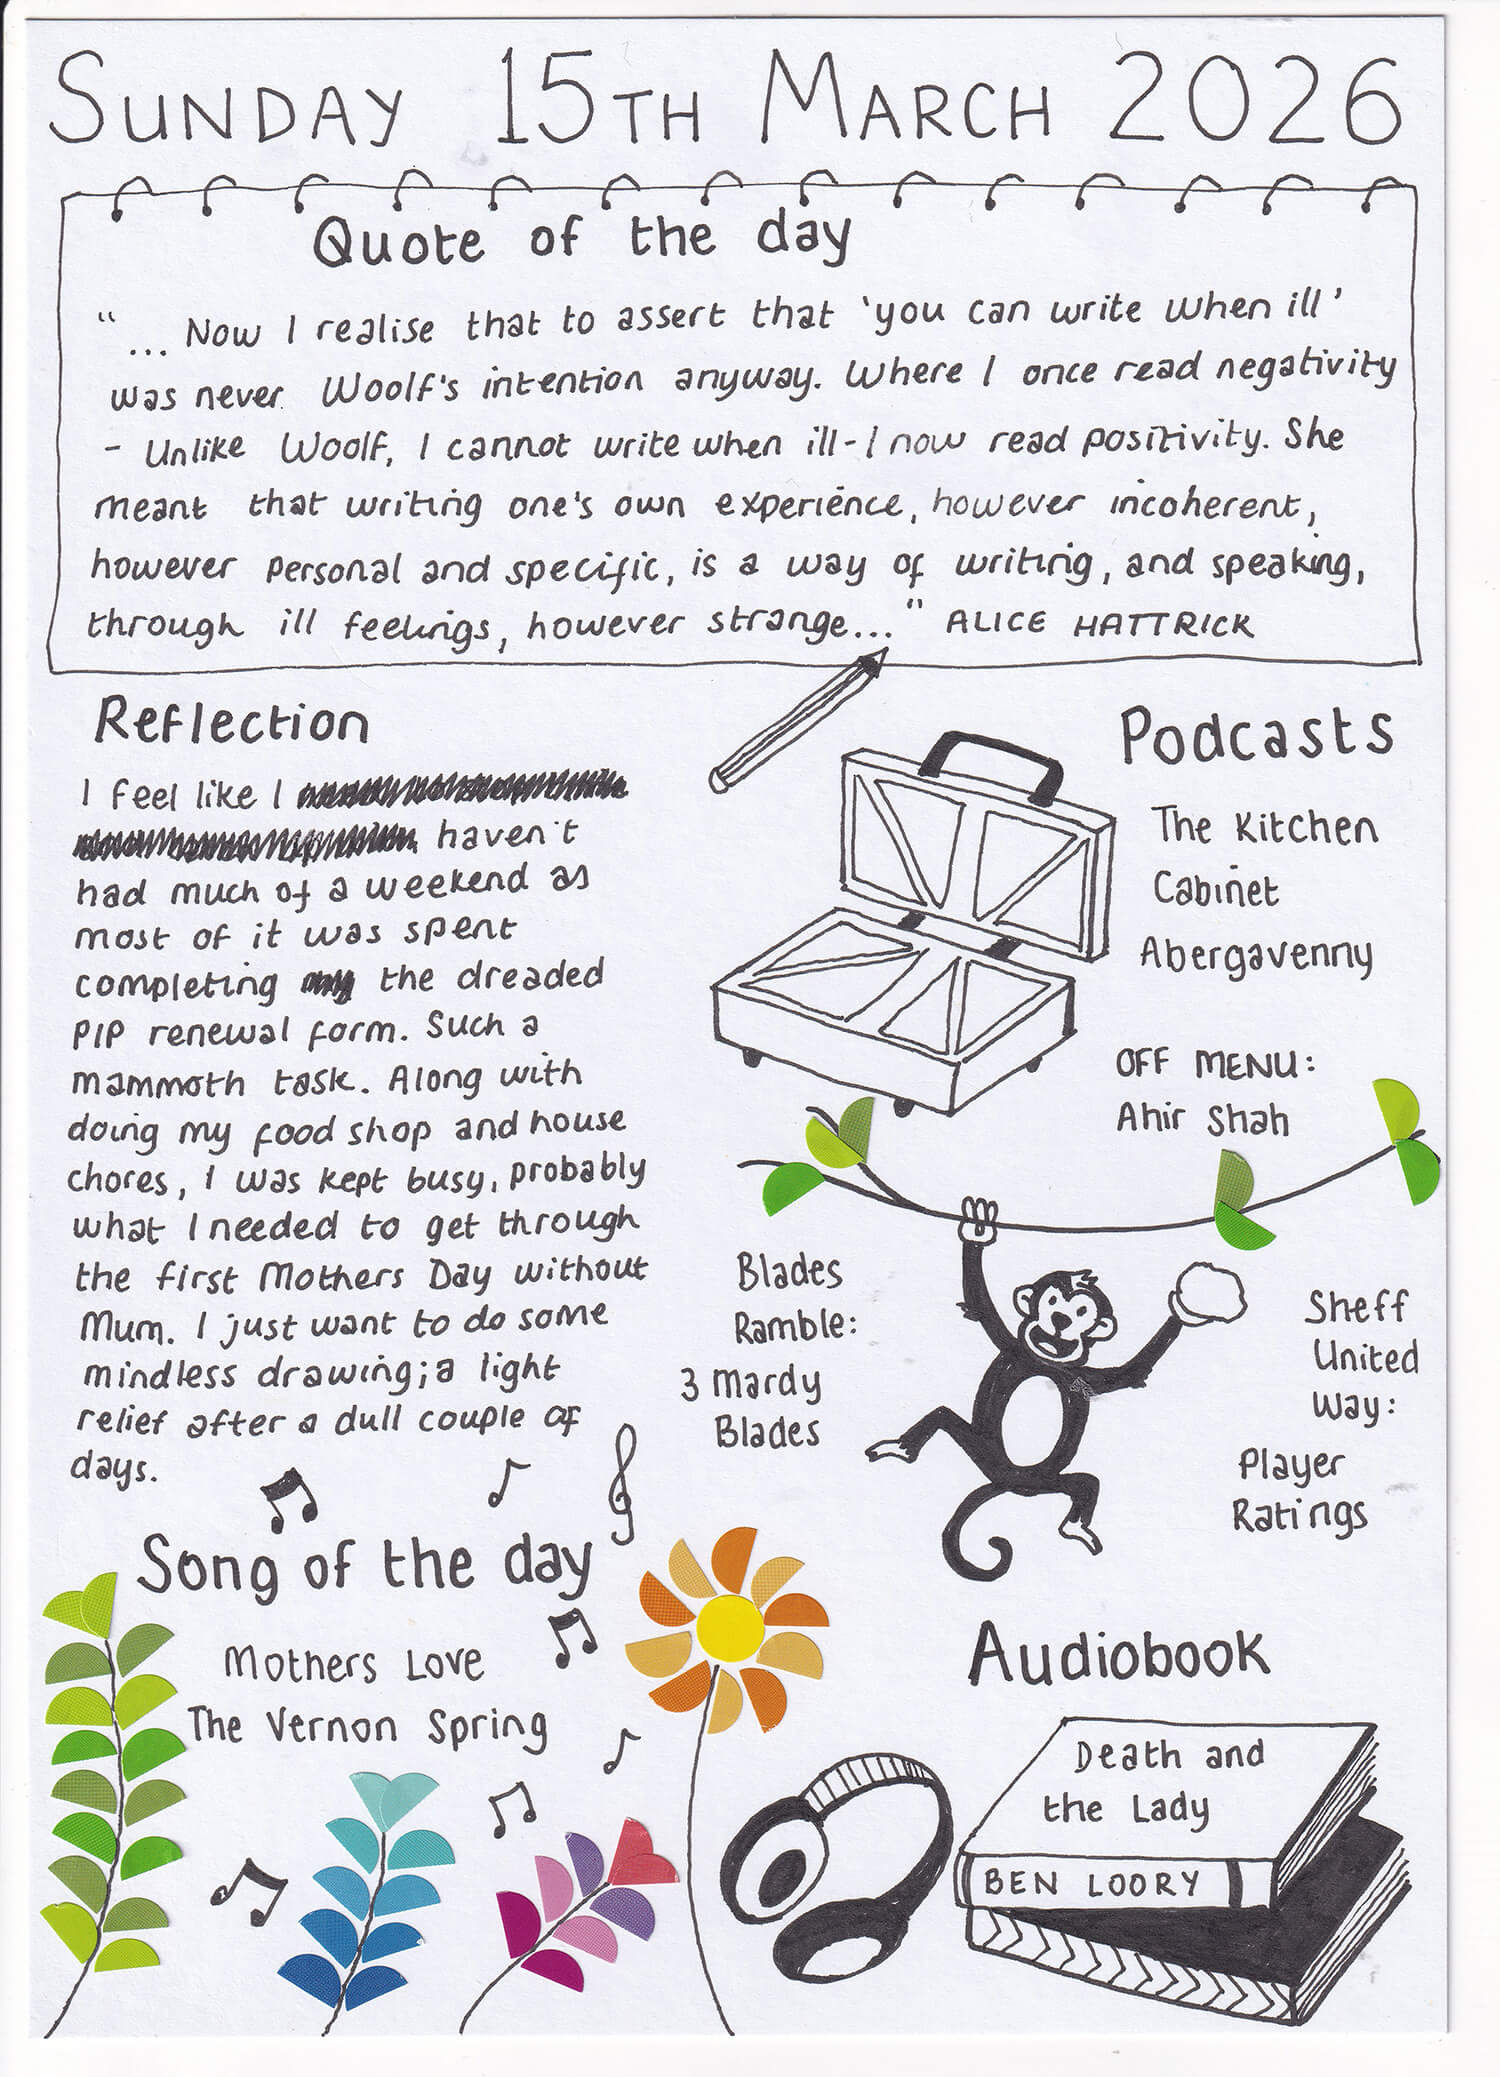 SUNDAY 15TH MARCH 2026
Quote of the day
"... Now I realise that to assert that 'you can write when ill'
was never Woolf's intention anyway. Where I once read negativity
- Unlike Woolf, I cannot write when ill - I now read positivity. She
meant that writing one's own experience, however incoherent,
however personal and specific, is a way of writing, and speaking,
through ill feelings, however strange..." ALICE HATTRICK
Reflection
I feel like I
haven't
had much of a weekend as
most of it was spent
completing the dreaded
PIP renewal form. Such a
mammoth task. Along with
doing my food shop and house
chores, I was kept busy, probably
what I needed to get through
the first Mothers Day without
Mum. I just want to do some
mindless drawing; a light
relief after a dull couple of
days.
Podcasts
The Kitchen
Cabinet
Abergavenny
OFF MENU:
Ahir Shah
Blades
Ramble:
3 Mardy
Blades
Sheff
United
Way:
Player
Ratings
Song of the day
Mothers Love
The Vernon Spring
Audiobook
Death and
the Lady
BEN LOORY